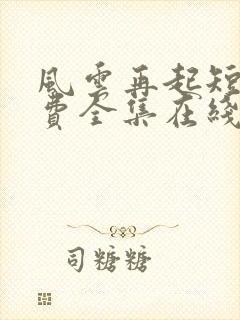 風雲再起短
費全集在綫
司糖糖